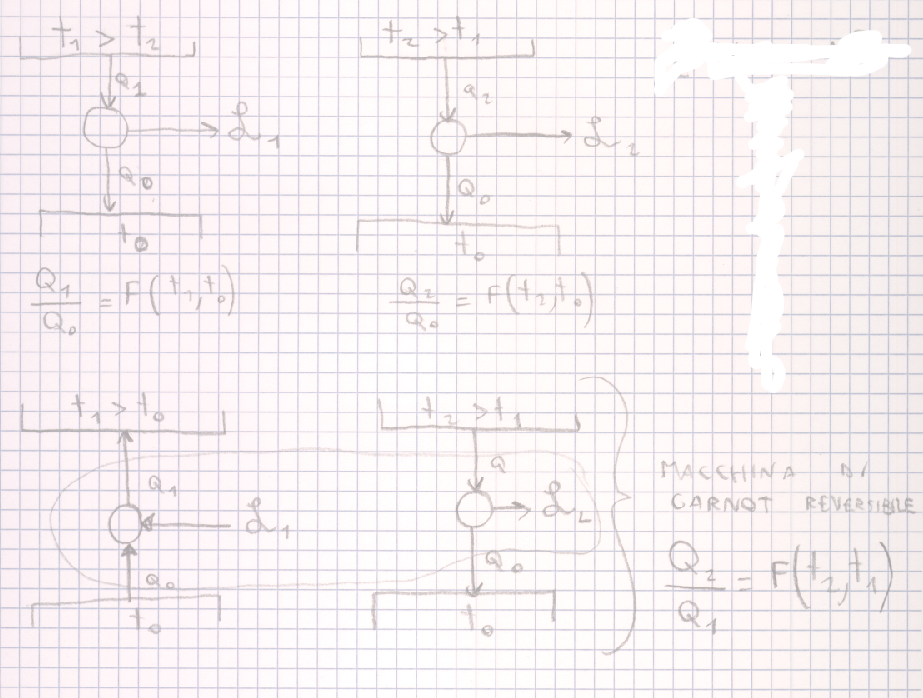 t₁ > t₂
Q₁
ℒ₁
Q₀
t₀
Q₁/Q₀ = F(t₁, t₀)
t₂ > t₁
Q₂
ℒ₂
Q₀
t₀
Q₂/Q₀ = F(t₂, t₀)
t₁ > t₀
Q₁
ℒ₁
Q₀
t₀
t₂ > t₁
Q
ℒ₂
Q₀
t₀
MACCHINA DI
CARNOT REVERSIBILE
Q₂/Q₁ = F(t₂, t₁)